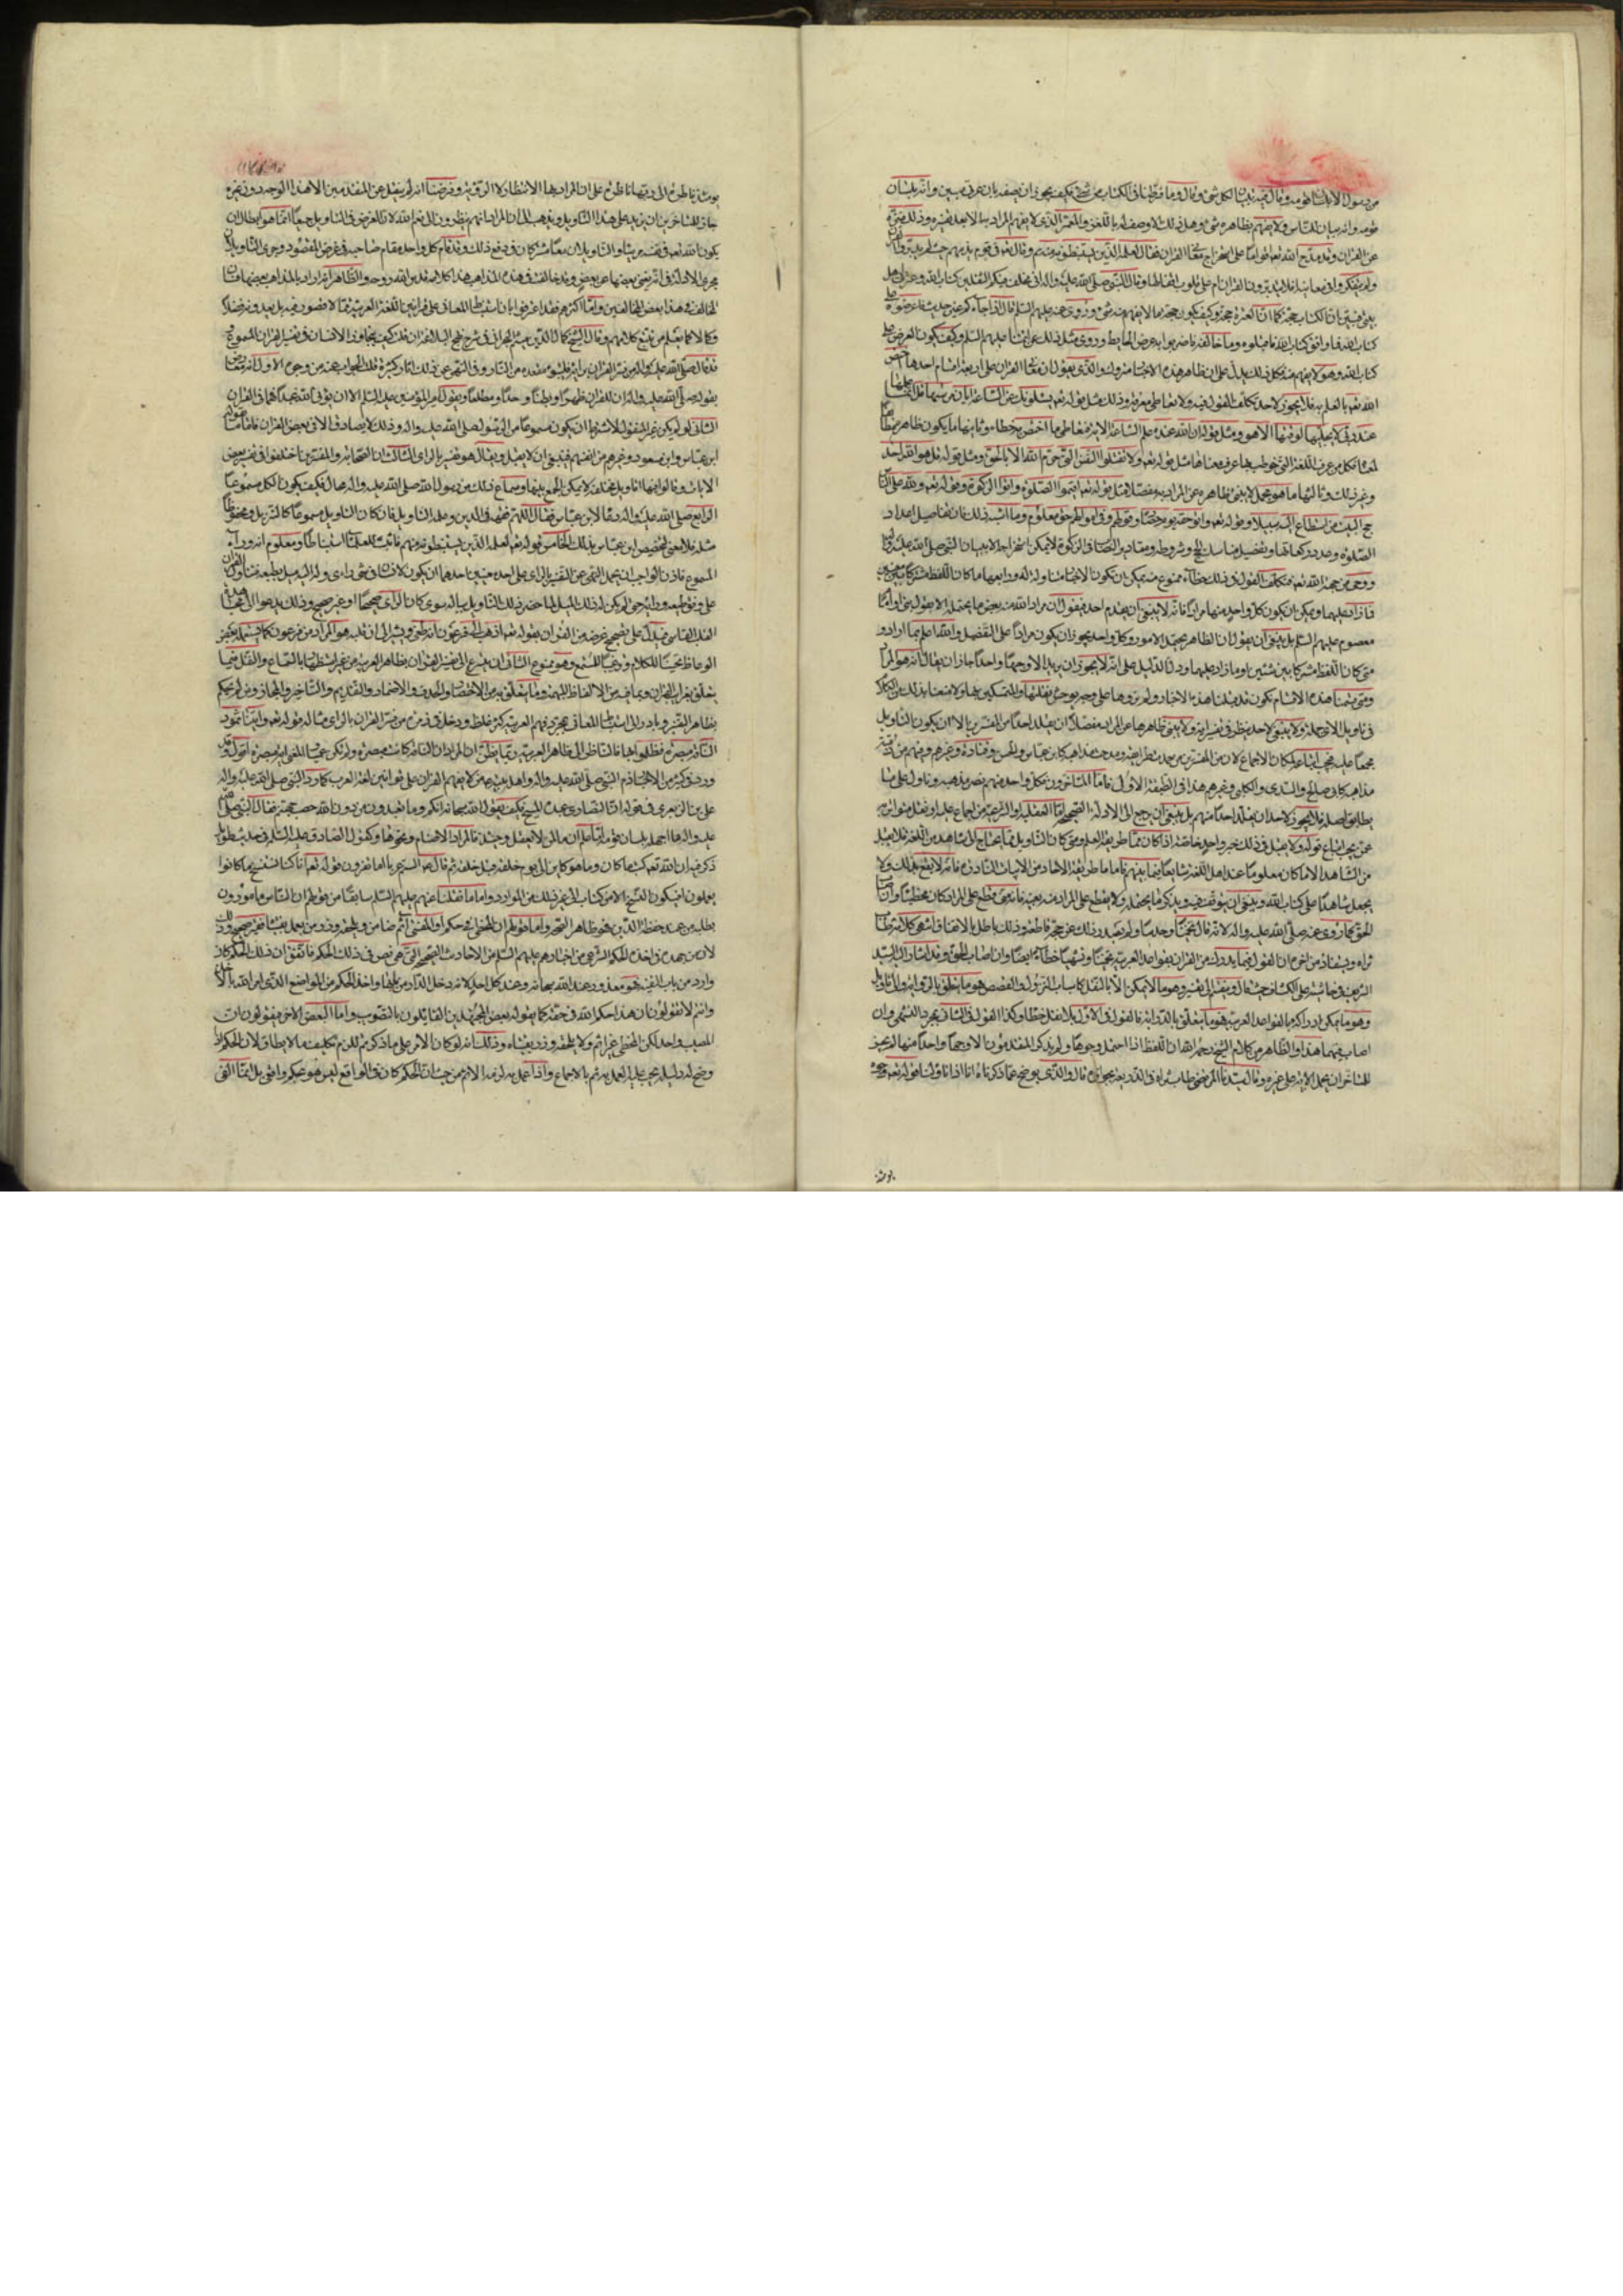 من رسول الا بلسان قومه وقال فيه تبيان لكل شي وقال وما فرطنا في الكتاب من شي فكيف يجوز ان يصفه بانه عربي مبين وانه بلسان
قومه وانه بيان للناس ولا يفهم بظاهره شي وهل ذلك الا وصف له باللغز والمعمى الذي لا يفهم المراد به الا بعد تفسيره وذلك منزه
عن القران وقد مدح الله تعه اقواما على استخراج معاني القران فقال لعلمه الذين يستنبطونه منهم وقال تعه في قوم يذمهم حيث لم يتدبروا القران
ولم يتفكروا في معانيه افلا يتدبرون القران ام على قلوب اقفالها وقال النبي صلى الله عليه واله اني مخلف فيكم الثقلين كتاب الله وعترتي اهل
بيتي فبين ان الكتاب حجة كما ان العترة حجة وكيف يكون حجة ما لا يفهم منه شي وروي عنه عليهم السلم قال اذا جاءكم عني حديث فاعرضوه على
كتاب الله فما وافق كتاب الله فاقبلوه وما خالفه فاضربوا به عرض الحايط وروي مثل ذلك عن ائمتنا عليهم السلم وكيف يكون العرض على
كتاب الله وهو لا يفهم منه وكل ذلك يدل على ان ظاهر هذه الاخبار متروك والذي نقول ان معاني القران على اربعة اقسام احدها ما اختص
الله تعه بالعلم به فلا يجوز لاحد تكلف القول فيه ولا تعاطي معرفته وذلك مثل قوله تعه يسئلونك عن الساعة ايان مرسيها قل انما علمها
عند ربي لا يجليها لوقتها الا هو ومثل قوله ان الله عنده علم الساعة الاية فتعاطي ما اختص به خطاء وثانيها ما يكون ظاهره مطابقا
لمعناه فكل من عرف اللغة التي خوطب بها عرف معناها مثل قوله تعه ولا تقتلوا النفس التي حرم الله الا بالحق ومثل قوله قل هو الله احد
وغير ذلك وثالثها ما هو مجمل لا ينبئ ظاهره عن المراد به مفصلا مثل قوله تعه اقيموا الصلوة واتوا الزكوة وقوله تعه ولله على الناس
حج البيت من استطاع اليه سبيلا وقوله تعه واتوا حقه يوم حصاده وقوله وفي اموالهم حق معلوم وما اشبه ذلك فان تفاصيل اعداد
الصلوة وعدد ركعاتها وتفصيل مناسك الحج وشروطه ومقادير النصاب في الزكوة لا يمكن استخراجه الا ببيان النبي صلى الله عليه واله
ووحي من جهة الله تعه فتكلف القول في ذلك خطاء ممنوع منه يمكن ان تكون الاخبار متناولة له ورابعها ما كان اللفظ مشتركا بين معنيين
فما زاد عليهما ويمكن ان يكون كل واحد منهما مرادا فانه لا ينبغي ان يقدم احد فيقول ان مراد الله منه بعض ما يحتمله الا بقول نبي او امام
معصوم عليهم السلم بل ينبغي ان يقول ان الظاهر يحتمل لامور وكل واحد يجوز ان يكون مرادا على التفصيل والله اعلم بما اراد و
متى كان اللفظ مشتركا بين شيئين او ما زاد عليهما ودل الدليل على انه لا يجوز ان يريد الا وجها واحدا جاز ان يقال انه هو المراد
ومتى قسمنا هذه الاقسام نكون قد قبلنا هذه الاخبار ولم نردها على وجه يوحش نقلتها والمتمسكين بها ولا منعنا بذلك من الكلام
في تاويل الاي جملة ولا ينبغي لاحد ينظر في تفسير اية لا ينبئ ظاهرها عن المراد مفصلا ان يقلد احدا من المفسرين الا ان يكون التاويل
مجمعا عليه فيجب اتباعه لمكان الاجماع لان من المفسرين من حمدت طرايقه ومدحت مذاهبه كابن عباس والحسن وقتادة وغيرهم ومنهم من ذمت
مذاهبه كابي صالح والسدي والكلبي وغيرهم هذا في الطبقة الاولى فاما المتاخرون فكل واحد منهم نصر مذهبه وتاول على ما
يطابق اصله فلا يجوز لاحد ان يقلد احدا منهم بل ينبغي ان يرجع الى الادلة الصحيحة اما العقلية او الشرعية من اجماع عليه او نقل متواتر به
عمن يجب اتباع قوله ولا يقبل في ذلك خبر واحد خاصة اذا كان مما طريقه العلم ومتى كان التاويل مما يحتاج الى شاهد من اللغة فلا يقبل
من الشاهد الا ما كان معلوما عند اهل اللغة شايعا فيما بينهم فاما ما طريقه الاحاد من الابيات النادرة فانه لا يقطع بذلك ولا
يجعل شاهدا على كتاب الله وينبغي ان يتوقف فيه ويذكر ما يحتمله ولا يقطع على المراد منه بعينه فانه متى قطع على المراد كان مخطئا وان اصاب
الحق كما روي عنه صلى الله عليه واله لانه قال تخمينا وحدسا ولم يصدر ذلك عن حجة قاطعة وذلك باطل بالاتفاق انتهى كلامه طاب
ثراه ويستفاد من اخره ان القول فيما يدرك من القران بقواعد العربية تخمينا وتشهيا خطاء ايضا وان اصاب الحق وقد اشار اليه السيد
الشريف في حاشيته على الكشاف حيث قال وينقسم الى تفسير وهو ما لا يمكن الا بالنقل كاسباب النزول والقصص فهو ما يتعلق بالرواية والى تاويل
وهو ما يمكن ادراكه بالقواعد العربية فهو ما يتعلق بالدراية فالقول في الاول بلا نقل خطا وكذا القول في الثاني بمجرد التشهي وان
اصاب فيهما هذا والظاهر من كلام الشيخ رحمه الله ان اللفظ اذا احتمل وجوها ولم يذكر المتقدمون الا وجها واحدا منها لم يجز
للمتاخر ان يحمل الاية على غيره وقال سيدنا المرتضى طاب ثراه في الذريعة بجوازه قال والذي يوضح عما ذكرناه انا اذا تاولنا قوله تعه وجوه
يومئذ
يومئذ ناضرة الى ربها ناظرة على ان المراد بها الانتظار لا الرؤية وفرضنا انه لم ينقل عن المتقدمين الا هذا الوجه دون غيره
جاز للمتاخرين ان يزيد على هذا التاويل ويذهب الى ان المراد انهم ينظرون الى نعم الله لان الغرض في التاويل جميعا انما هو ابطال ان
يكون الله تعه في نفسه مرئيا والتاويلان معا مشتركان في دفع ذلك وقد قام كل واحد مقام صاحبه في الغرض المقصود وجرى التاويلان
مجرى الادلة في انه يغني بعضها عن بعض وقد خالف في هذه المذاهب هذا كلامه قدس الله روحه والظاهر انه اراد بالمذاهب بعضها فان
المخالف في هذا بعض المخالفين واما اكثرهم فقد اعترفوا بان استنباط المعاني على قوانين اللغة العربية مما لا قصور فيه بل يعدونه فضلا
وكمالا كما يعلم من تتبع كلامهم وقال الشيخ كمال الدين ميثم البحراني في شرح نهج البلاغة فان قلت كيف يتجاوز الانسان في تفسير القران المسموع
فقد قال صلى الله عليه واله من فسر القران برايه فليتبوء مقعده من النار وفي النهي عن ذلك اثار كثيرة قلت الجواب عنه من وجوه الاول انه معارض
بقوله صلى الله عليه واله ان للقران ظهرا وبطنا وحدا ومطلعا وبقول امير المؤمنين عليه السلم الا ان يؤتي الله عبدا فهما في القران
الثاني لو لم يكن غير المنقول لاشترط ان يكون مسموعا من الرسول صلى الله عليه واله وذلك لا يصادف الا في بعض القران فاما ما قاله
ابن عباس وابن مسعود وغيرهم من انفسهم فينبغي ان لا يقبل ويقال هو تفسير بالراي الثالث ان الصحابة والمفسرين اختلفوا في تفسير بعض
الايات وقالوا فيها اقاويل مختلفة لا يمكن الجمع بينها وسماع ذلك من رسول الله صلى الله عليه واله محال فكيف يكون الكل مسموعا
الرابع انه صلى الله عليه واله دعا لابن عباس فقال اللهم فقهه في الدين وعلمه التاويل فان كان التاويل مسموعا كالتنزيل ومحفوظا
مثله فلا معنى لتخصيص ابن عباس بذلك الخامس قوله تعه لعلمه الذين يستنبطونه منهم فاثبت للعلماء استنباطا ومعلوم انه وراء
المسموع فاذن الواجب ان يحمل النهي عن التفسير بالراي على احد معنيين احدهما ان يكون للانسان في شي راي وله اليه ميل بطبعه فيتاول القران
على وفق طبعه ورايه حتى لو لم يكن له ذلك الميل لما خطر ذلك التاويل بباله سوى كان الراي صحيحا او غير صحيح وذلك كمن يدعو الى مجاهدة
القلب القاسي فيستدل على تصحيح غرضه من القران بقوله تعه اذهب الى فرعون انه طغى ويشير الى ان قلبه هو المراد من فرعون كما يستعمله بعض
الوعاظ تحسينا للكلام وترغيبا للسمع وهو ممنوع الثاني ان يتسرع الى تفسير القران بظاهر العربية من غير استظهار بالسماع والنقل فيما
يتعلق بغرايب القران وما فيه من الالفاظ المبهمة وما يتعلق به من الاختصار والحذف والاضمار والتقديم والتاخير والمجاز فمن لم يحكم
بظاهر التفسير وبادر الى استنباط المعاني بمجرد فهم العربية كثر غلطه ودخل في زمرة من فسر القران بالراي مثاله قوله تعه واتينا ثمود
الناقة مبصرة فظلموا بها فالناظر الى ظاهر العربية ربما يظن ان المراد ان الناقة كانت مبصرة ولم تكن عمياء والمعنى اية مبصرة اقول قد
ورد في كثير من الاخبار ذم النبي صلى الله عليه واله واهل بيته عمن لا يفهم القران على قوانين لغة العرب كما رد النبي صلى الله عليه واله
على بن الزبعري في قوله ان النصارى عبدت المسيح فكيف يقول الله سبحانه انكم وما تعبدون من دون الله حصب جهنم فقال النبي صلى الله
عليه واله ما اجهلك بلسان قومك اما علمت ان ما لمن لا يعقل وحينئذ فالمراد الاصنام ونحوها وكقول الصادق عليه السلم في حديث طويل
ذكر فيه ان الله تعه كتب ما كان وما هو كاين الى يوم خلقه قبل خلقه ثم قال عم الستم عربا اما تقرون قوله تعه انا كنا نستنسخ ما كانوا
يعملون افيكون النسخ الا من كتاب الى غير ذلك من الموارد واما ما نقلنا عنهم عليهم السلم سابقا من قولهم ان الناس مامورون
بطلبه من عند حفظة الدين فهو ظاهر الصحة واما قولهم ان المخطئ في حكمه او المفتي اثم ضامن ويلحقه وزر من يعمل بفتياه فغير صحيح وذلك
لان من جهد في اخذ الحكم الشرعي من اخبارهم عليهم السلم من الاحاديث الصحيحة التي هي نص في ذلك الحكم فاتفق ان ذلك الحكم كان
واردا من باب التقية فهو معذور عند الله سبحانه وعند كل احد لانه دخل الدار من بابها واخذ الحكم من المواضع الذي امر الله بالاخذ
وانتم لا تقولون ان هذا حكم الله في حقه كما يقوله بعض المجتهدين القايلون بالتصويب واما البعض الاخر فيقولون ان
المصيب واحد لكن المخطئ غير اثم ولا يلحقه وزر بفتياه وذلك انه لو كان الامر على ما ذكرتم للزم تكليف ما لا يطاق لان الحكم اذا
وضح له دليله يجب عليه العمل به ثم بالاجماع واذا عمل به لزمه الاثم من حيث ان الحكم كان في الواقع ليس هو بحكم وافتى بل انما القى